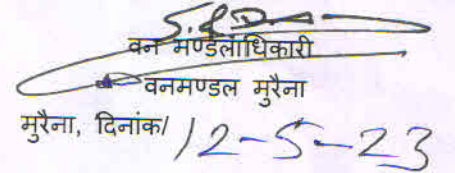 वन मण्डलाधिकारी
वनमण्डल मुरैना
मुरैना, दिनांक/ 12-5-23